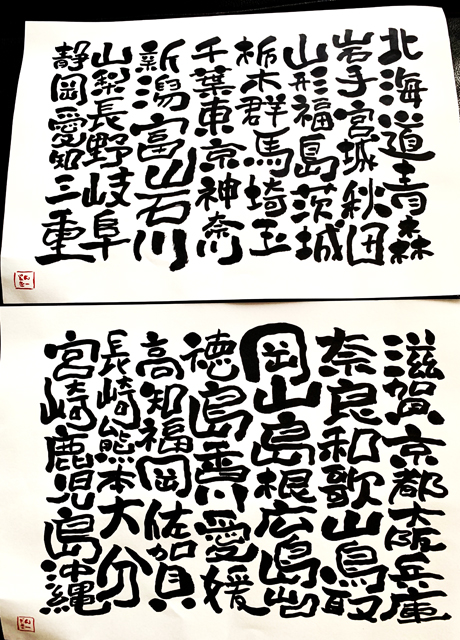 北海道青森
岩手宮城秋田
山形福島茨城
栃木群馬埼玉
千葉東京神奈川
新潟富山石川
山梨長野岐阜
静岡愛知三重
滋賀京都大阪兵庫
奈良和歌山鳥取
岡山島根広島山口
徳島香川愛媛
高知福岡佐賀
長崎熊本大分
宮崎鹿児島沖縄